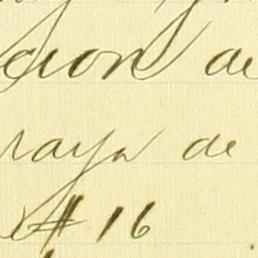 cion de
raya de
# 16